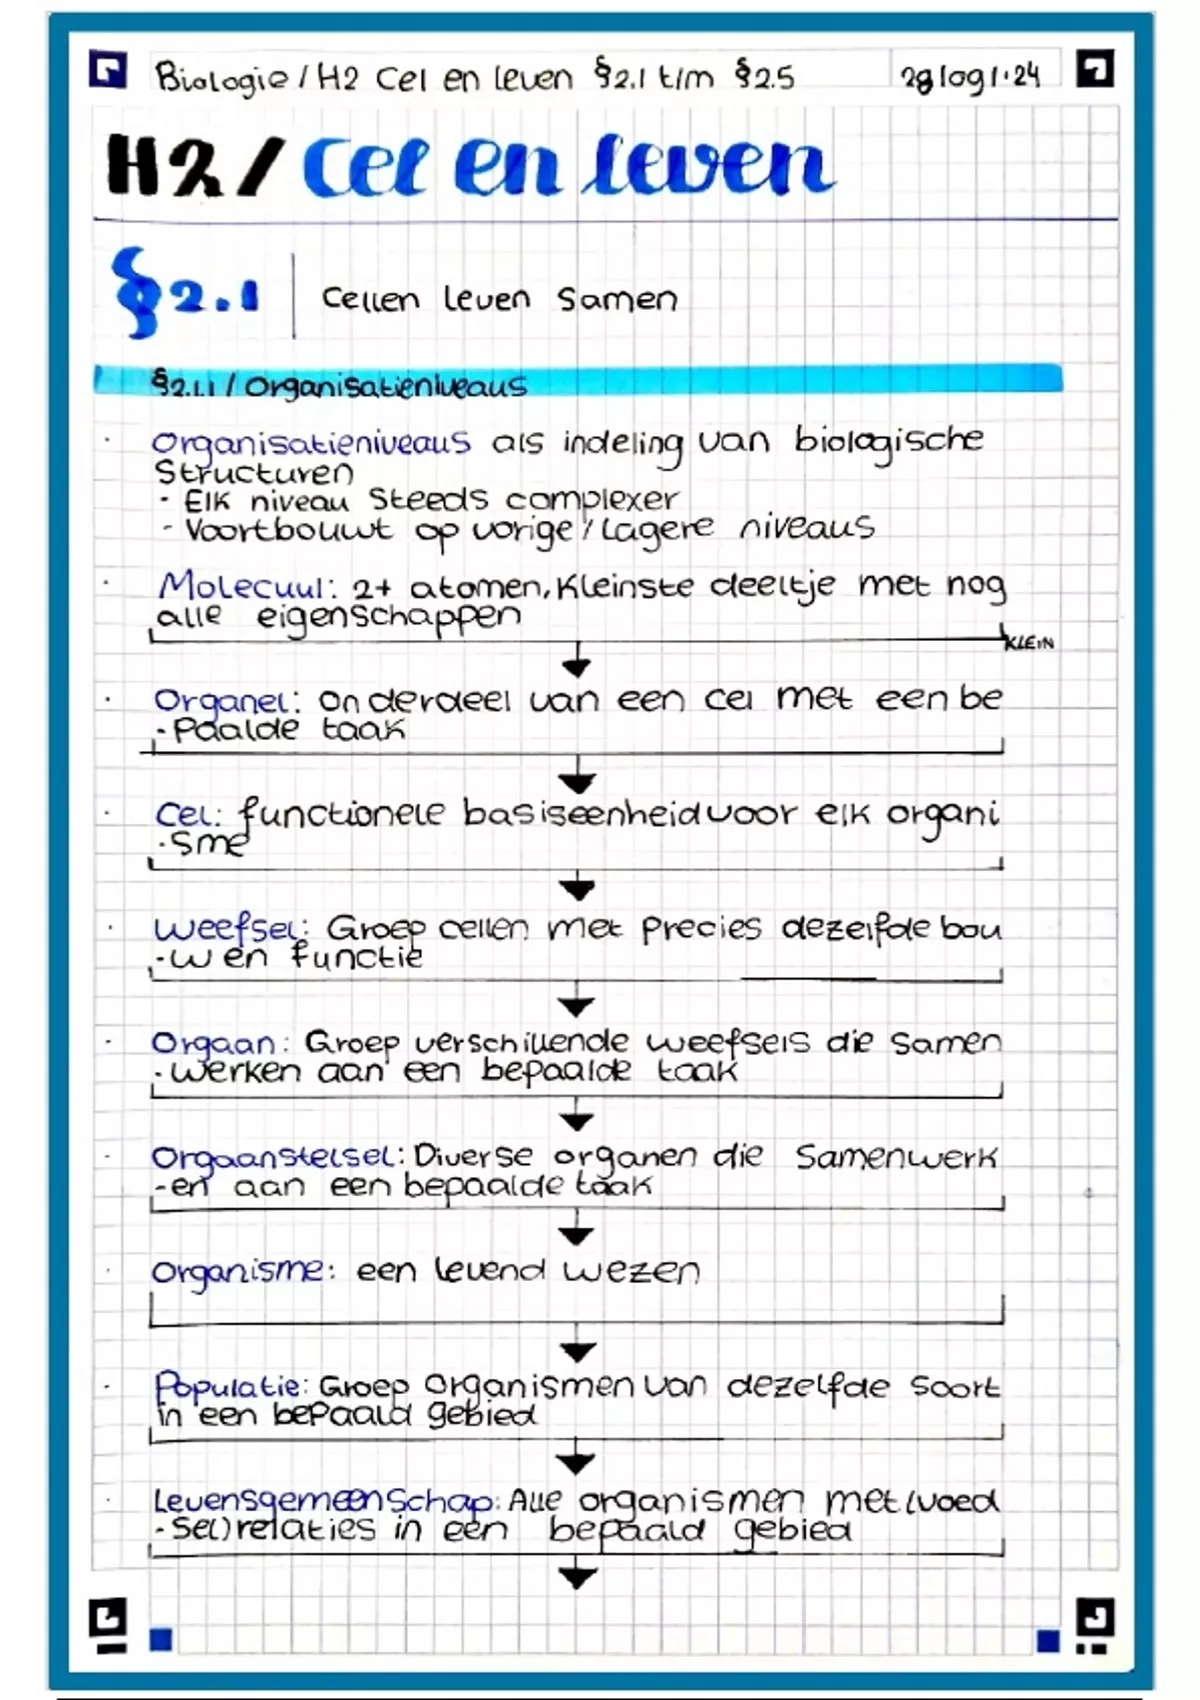 Biologie / H2 Cel en leven §2.1 t/m §2.5 28/09/'24
H2 / Cel en leven
§2.1 Cellen leven samen
§2.1.1 / Organisatieniveaus
· Organisatieniveaus als indeling van biologische
structuren
- Elk niveau steeds complexer
- Voortbouwt op vorige / lagere niveaus
· Molecuul: 2+ atomen, kleinste deeltje met nog
alle eigenschappen
KLEIN
· Organel: onderdeel van een cel met een be
-paalde taak
· Cel: functionele basiseenheid voor elk organi
-sme
· Weefsel: Groep cellen met precies dezelfde bou
-w en functie
· Orgaan: Groep verschillende weefsels die samen
-werken aan een bepaalde taak
· Orgaanstelsel: Diverse organen die samenwerk
-en aan een bepaalde taak
· Organisme: een levend wezen
· Populatie: Groep organismen van dezelfde soort
in een bepaald gebied
· Levensgemeenschap: Alle organismen met (voed
-sel) relaties in een bepaald gebied